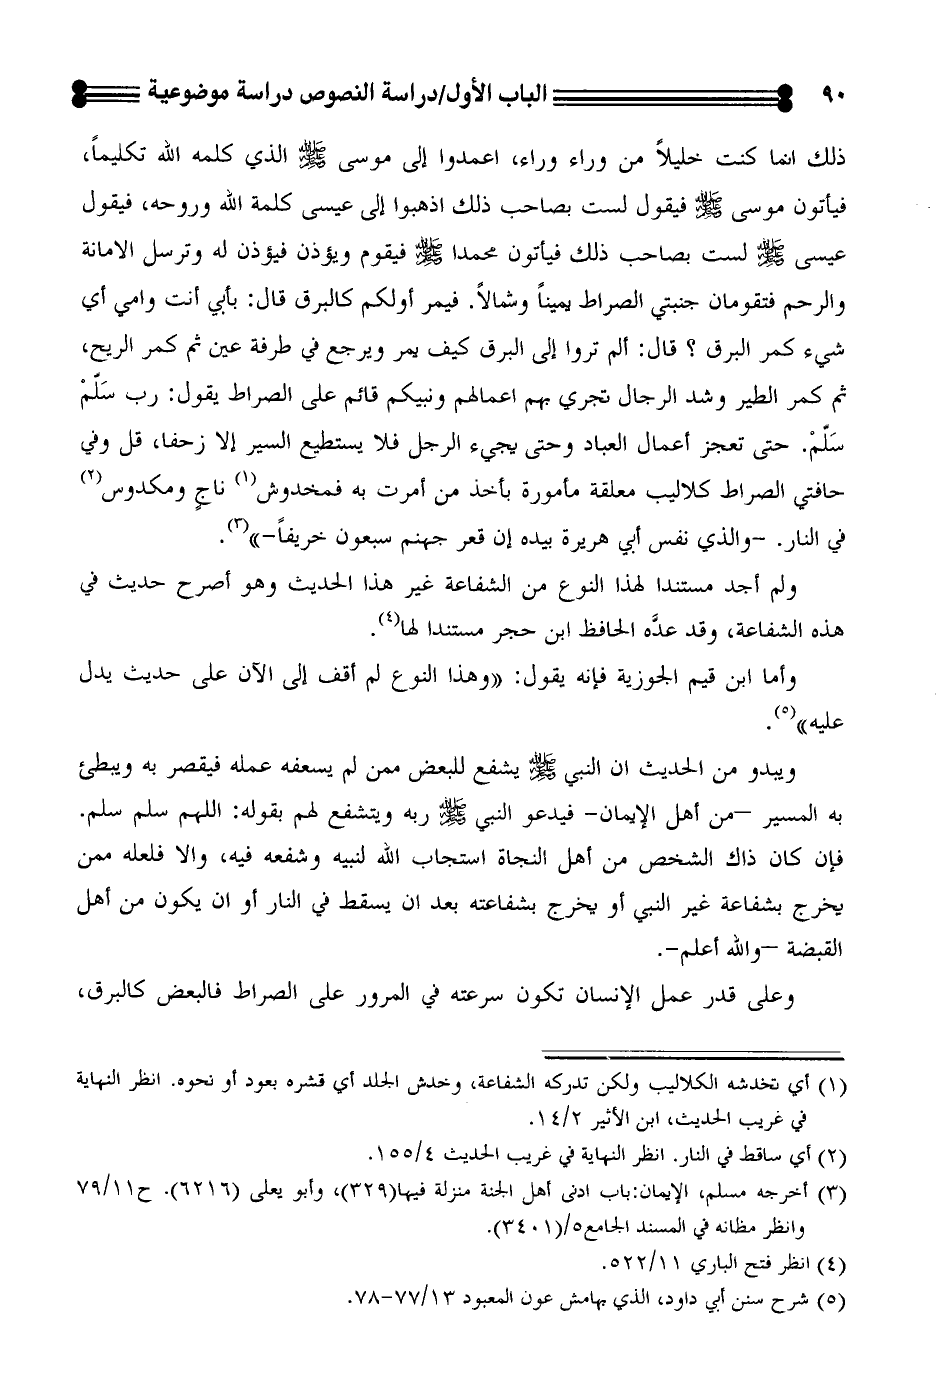 ٩٠ الباب الأول/دراسة النصوص دراسة موضوعية
ذلك انما كنت خليلاً من وراء وراء، اعمدوا إلى موسى ﷺ الذي كلمه الله تكليماً،
فيأتون موسى ﷺ فيقول لست بصاحب ذلك اذهبوا إلى عيسى كلمة الله وروحه، فيقول
عيسى ﷺ لست بصاحب ذلك فيأتون محمدا ﷺ فيقوم ويؤذن فيؤذن له وترسل الامانة
والرحم فتقومان جنبتي الصراط يميناً وشمالاً. فيمر أولكم كالبرق قال: بأبي أنت وامي أي
شيء كمر البرق ؟ قال: ألم تروا إلى البرق كيف يمر ويرجع في طرفة عين ثم كمر الريح،
ثم كمر الطير وشد الرجال تجري بهم اعمالهم ونبيكم قائم على الصراط يقول: رب سَلّمْ
سَلّمْ. حتى تعجز أعمال العباد وحتى يجيء الرجل فلا يستطيع السير إلا زحفا، قل وفي
حافتي الصراط كلاليب معلقة مأمورة بأخذ من أمرت به فمخدوش(١) ناجٍ ومكدوس(٢)
في النار. –والذي نفس أبي هريرة بيده إن قعر جهنم سبعون خريفاً–»(٣).
ولم أجد مستندا لهذا النوع من الشفاعة غير هذا الحديث وهو أصرح حديث في
هذه الشفاعة، وقد عدَّه الحافظ ابن حجر مستندا لها(٤).
وأما ابن قيم الجوزية فإنه يقول: «وهذا النوع لم أقف إلى الآن على حديث يدل
عليه»(٥).
ويبدو من الحديث ان النبي ﷺ يشفع للبعض ممن لم يسعفه عمله فيقصر به ويبطئ
به المسير –من أهل الإيمان– فيدعو النبي ﷺ ربه ويتشفع لهم بقوله: اللهم سلم سلم.
فإن كان ذاك الشخص من أهل النجاة استجاب الله لنبيه وشفعه فيه، والا فلعله ممن
يخرج بشفاعة غير النبي أو يخرج بشفاعته بعد ان يسقط في النار أو ان يكون من أهل
القبضة –والله أعلم–.
وعلى قدر عمل الإنسان تكون سرعته في المرور على الصراط فالبعض كالبرق،
(١) أي تخدشه الكلاليب ولكن تدركه الشفاعة، وخدش الجلد أي قشره بعود أو نحوه. انظر النهاية
في غريب الحديث، ابن الأثير ١٤/٢.
(٢) أي ساقط في النار. انظر النهاية في غريب الحديث ١٥٥/٤.
(٣) أخرجه مسلم، الإيمان:باب ادنى أهل الجنة منزلة فيها(٣٢٩)، وأبو يعلى (٦٢١٦). ح٧٩/١١
وانظر مظانه في المسند الجامع٥/(٣٤٠١).
(٤) انظر فتح الباري ٥٢٢/١١.
(٥) شرح سنن أبي داود، الذي بهامش عون المعبود ٧٧/١٣-٧٨.